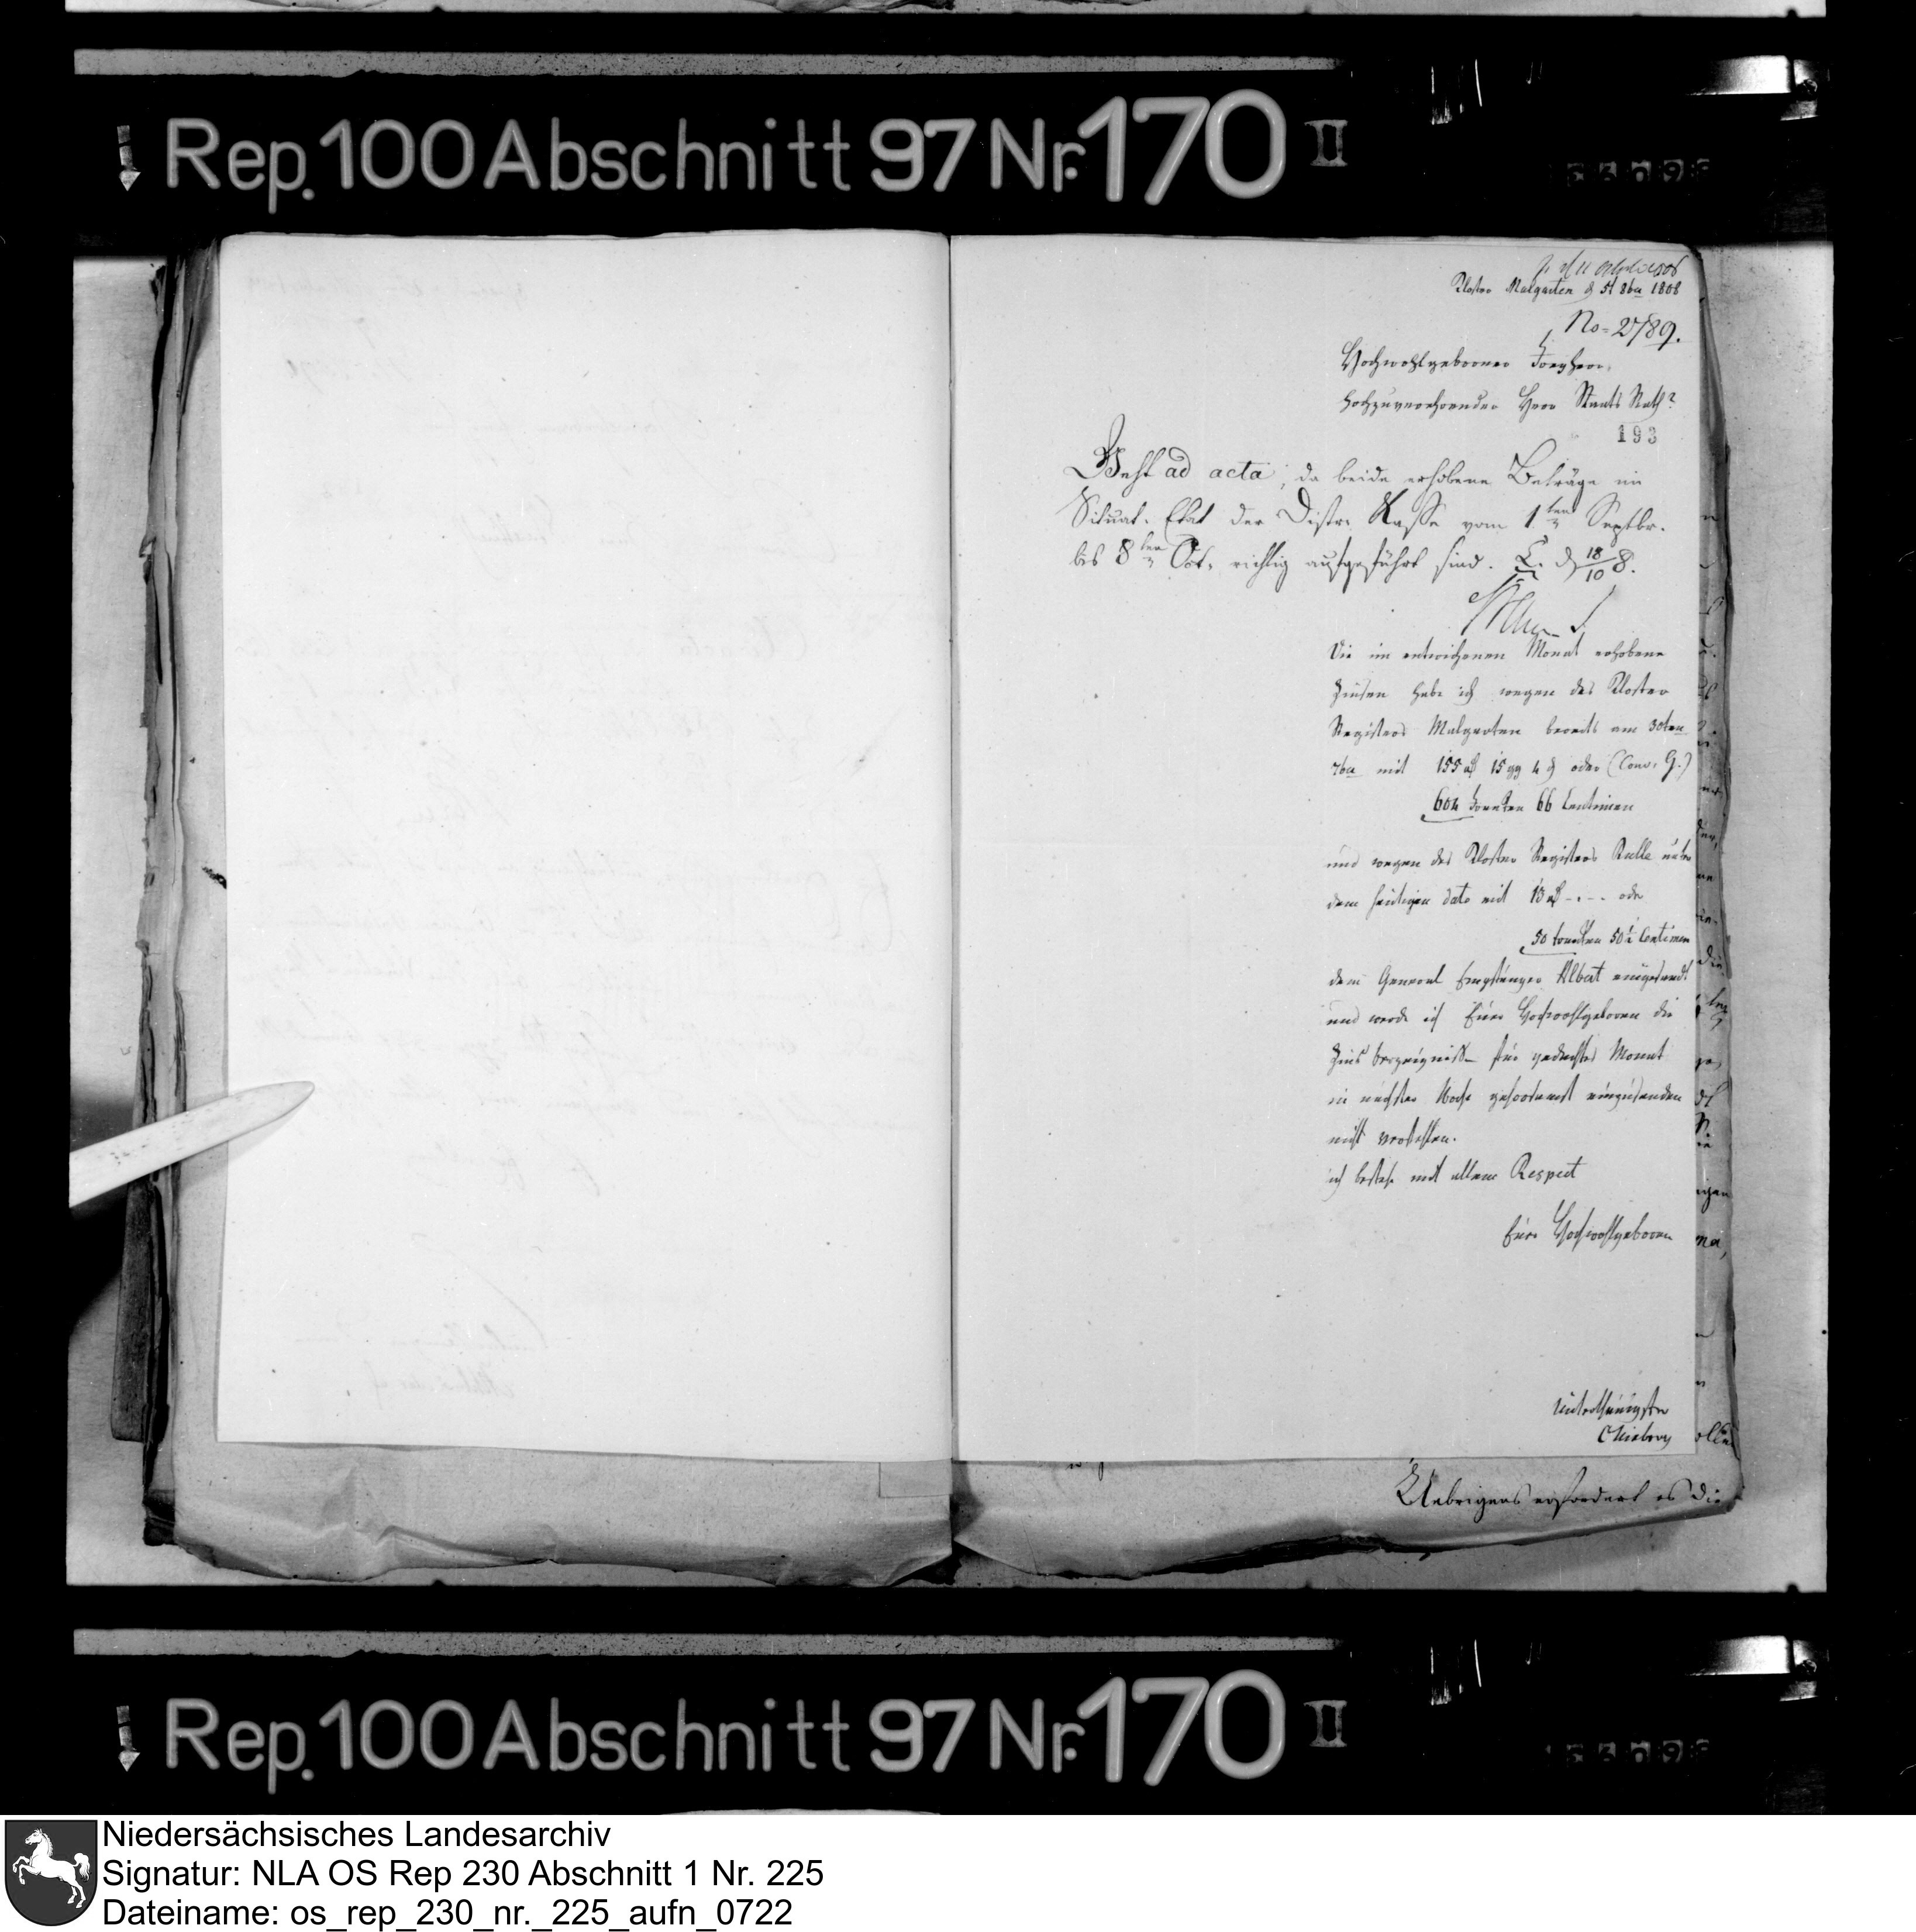 Rep. 100 Abschnitt 97 Nr. 170 II
Kloster Malgarten d 5t 8br 1808
No = 2789.
Hochwohlgeborner Freyherr,
Hochzuverehrender Herr Staats Rath?
193
Geht ad acta, da beide erhobene Beträge im
Situat. Etat der Distr. Kasse vom 1ten Septbr.
bis 8ten Oct. richtig aufgeführt sind. d 18/10 8.
Die im entwichenen Monat erhobene
Zinsen habe ich wegen des Kloster
Registers Malgarten bereits am 30ten
7br mit 155 rt 15 gg 4 d oder (Conv. G.)
604 Franken 66 Centimen
und wegen des Kloster Registers Rulle unter
dem heutigen dato mit 13 rt -.- oder
50 Franken 50½ Centimen
dem General Empfänger Albert eingesandt
und werde ich Euer Hochwohlgeboren die
Zins für gedachten Monat
in nächster Woche gehorsamst einzusenden
nicht verfehlen.
ich bestehe mit allem Respect
Euer Hochwohlgeboren
unterthänigster
Uebrigens erfordert es die
Rep. 100 Abschnitt 97 Nr. 170 II
Niedersächsisches Landesarchiv
Signatur: NLA OS Rep 230 Abschnitt 1 Nr. 225
Dateiname: os_rep_230_nr._225_aufn_0722